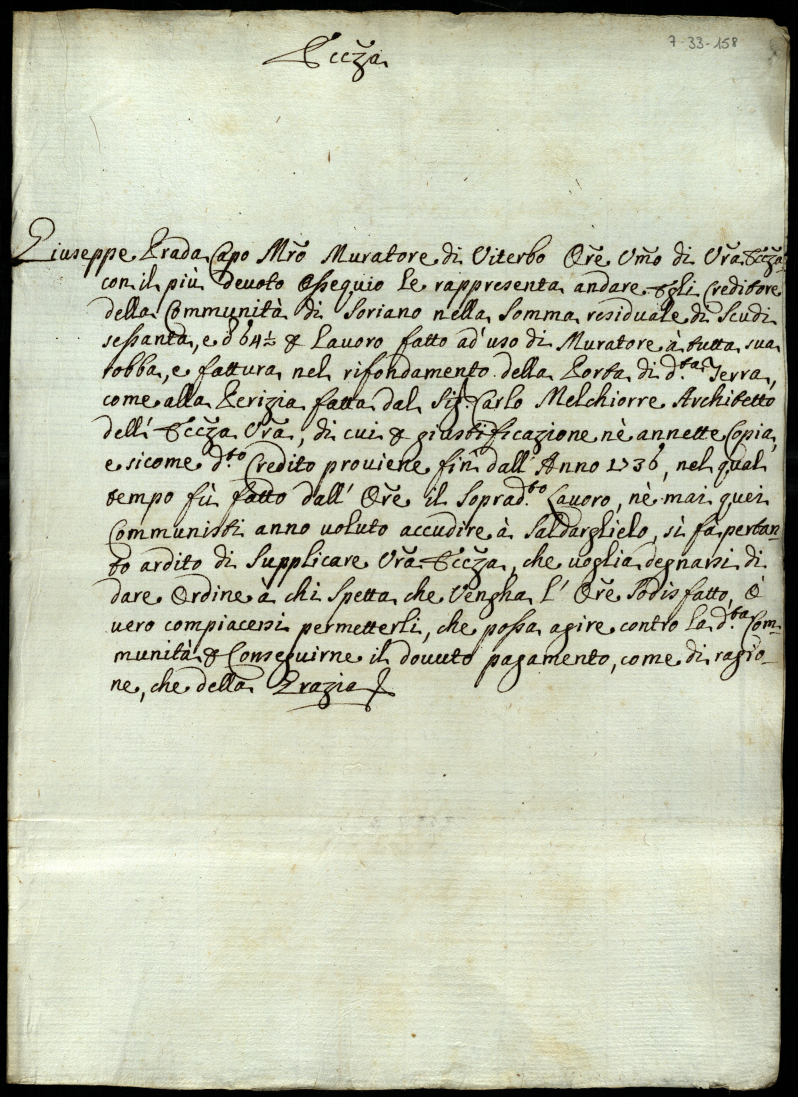 7-33-158
Eccza
Giuseppe Prada Capo Mro Muratore di Viterbo Ore Umo di Vra Eccza
con il più devoto Ossequio le rappresenta andare Egli Creditore
della Communità di Soriano nella Somma residuale di Scudi
sessanta, e b 64½ p Lauoro fatto ad' uso di Muratore à tutta sua
robba, e fattura nel rifondamento della Porta di d.ta Terra,
come alla Perizia fatta dal Sig. Carlo Melchiorre Architetto
dell' Eccza Vra, di cui p giustificazione nè annette Copia,
e sicome d.to Credito proviene fin dall' Anno 1736, nel qual
tempo fù fatto dall' Ore il Soprad.to Lauoro, nè mai quei
Communisti anno uoluto accudire à Saldarglielo, si fà pertan-
to ardito di Supplicare Vra Eccza, che uoglia degnarsi di
dare Ordine à chi Spetta che Vengha l' Ore Sodisfatto, ò
uero compiacersi permetterli, che possa agire contro la d.ta Com-
munità p Conseguirne il douuto pagamento, come di ragio-
ne, che della Grazia